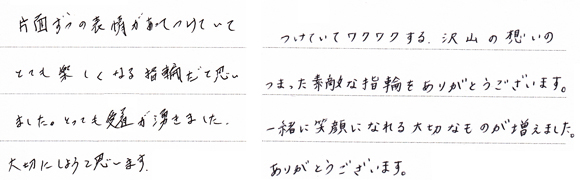 片面ずつの表情があってつけていて
とても楽しくなる指輪だと思い
ました。とっても愛着が湧きました。
大切にしようと思います。
つけていてワクワクする、沢山の想いの
つまった素敵な指輪をありがとうございます。
一緒に笑顔になれる大切なものが増えました。
ありがとうございます。